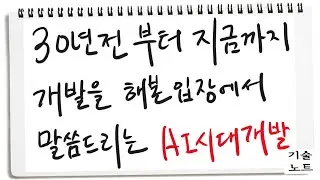 30년전 부터 지금까지
개발을 해본 입장에서
말씀드리는 AI시대개발
기술
노트